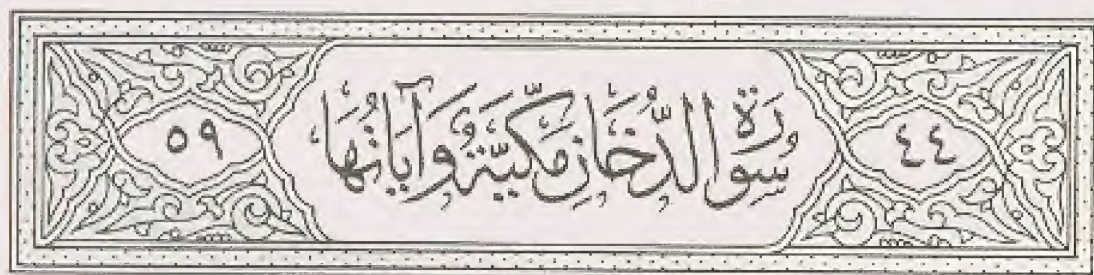 ٤٤ سُورَةُ الدُّخَانِ مَكِّيَّةٌ وَآيَاتُهَا ٥٩